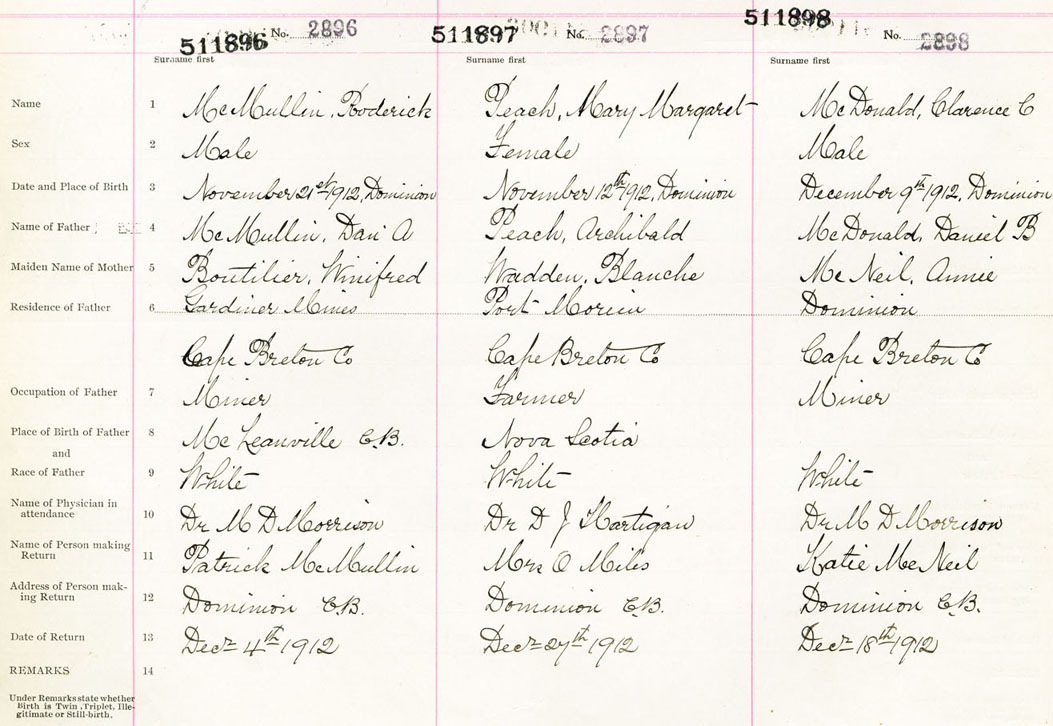 511896 No. 2896 511897 No. 2897 511898 No. 2898
Surname first Surname first Surname first
Name 1 McMullin, Roderick Peach, Mary Margaret McDonald, Clarence C
Sex 2 Male Female Male
Date and Place of Birth 3 November 21st 1912, Dominion November 12th 1912, Dominion December 9th 1912, Dominion
Name of Father 4 McMullin, Dan A Peach, Archibald McDonald, Daniel B
Maiden Name of Mother 5 Boutilier, Winifred Wadden, Blanche McNeil, Annie
Residence of Father 6 Gardiner Mines Port Morien Dominion
Cape Breton Co Cape Breton Co Cape Breton Co
Occupation of Father 7 Miner Farmer Miner
Place of Birth of Father 8 McLeanville C.B. Nova Scotia
and
Race of Father 9 White White White
Name of Physician in
attendance 10 Dr M D Morrison Dr D J Hartigan Dr M D Morrison
Name of Person making
Return 11 Patrick McMullin Mrs O Miles Katie McNeil
Address of Person mak-
ing Return 12 Dominion C.B. Dominion C.B. Dominion C.B.
Date of Return 13 Decr 4th 1912 Decr 27th 1912 Decr 18th 1912
REMARKS 14
Under Remarks state whether
Birth is Twin, Triplet, Ille-
gitimate or Still-birth.